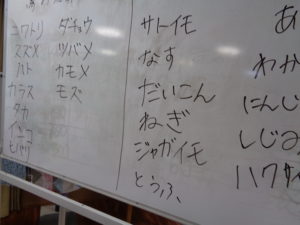 ニワトリ
スズメ
ハト
カラス
タカ
インコ
ヒバリ
ダチョウ
ツバメ
カモメ
モズ
サトイモ
なす
だいこん
ねぎ
ジャガイモ
とうふ
あ
わか
にんじ
しじみ
ハクサ